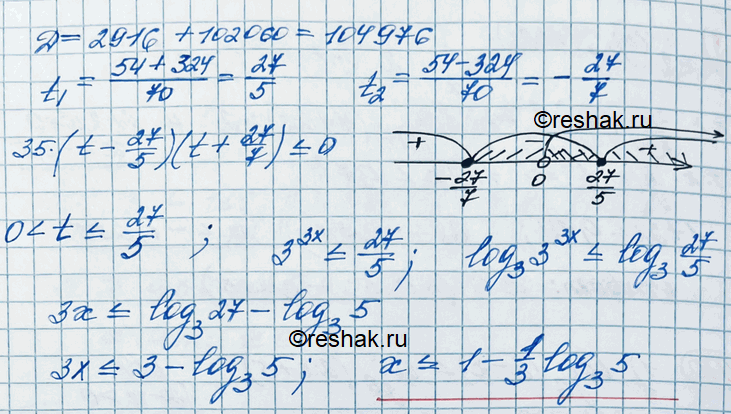 D = 2916 + 102060 = 104976
t₁ = (54+324)/70 = 27/5 t₂ = (54−324)/70 = −27/7
©reshak.ru
35·(t − 27/5)(t + 27/7) ≤ 0 + − + −27/7 0 27/5
0 < t ≤ 27/5 ; 3^{3x} ≤ 27/5 ; log₃ 3^{3x} ≤ log₃ 27/5
3x ≤ log₃ 27 − log₃ 5
©reshak.ru
3x ≤ 3 − log₃ 5 ; x ≤ 1 − 1/3 log₃ 5